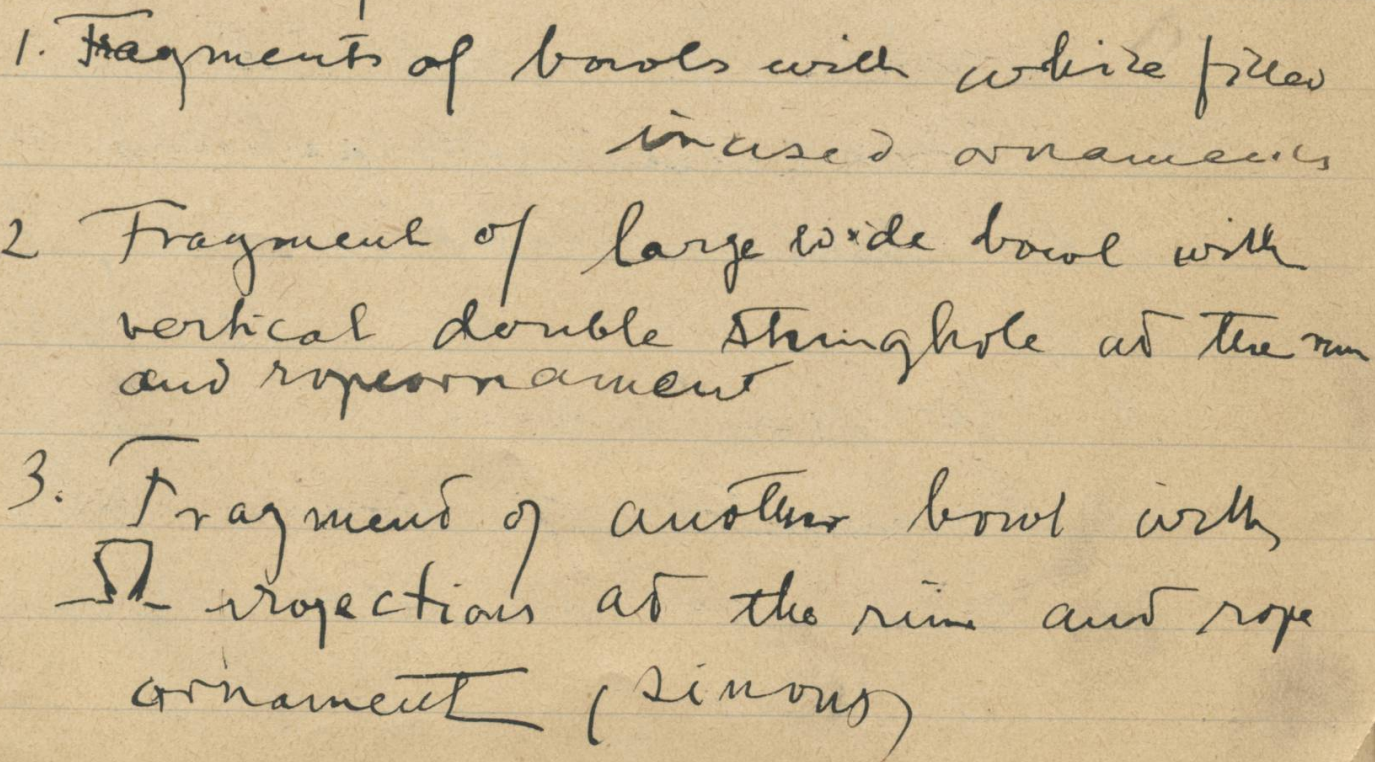 1. Fragments of bowls with white filled
incised ornaments
2 Fragment of large wide bowl with
vertical double stringhole at the rim
and ropeornament
3. Fragment of another bowl with
Ω projections at the rim and rope
ornament (sinous)